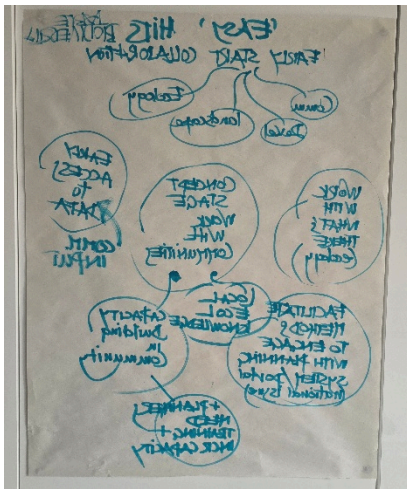 'EASY' HITS
'EARLY START
COLLABORATION
Ecology
Landscape
Devel
Comm
EARLY
ACCESS
TO
DATA
COMM
INPUT
CONCEPT
STAGE
WORK
WITH
COMMUNITIE
WORK
WITH
WHAT'S
THERE
Ecology
LOCAL
ECOL
KNOWLEDGE
CAPACITY
Building
in
Community
FACILITATE
METHODS
TO ENGAGE
WITH PLANNING
SYSTEM/portal
(national issue)
+ PLANNERS
NEED
TRAINING +
INCR CAPACITY